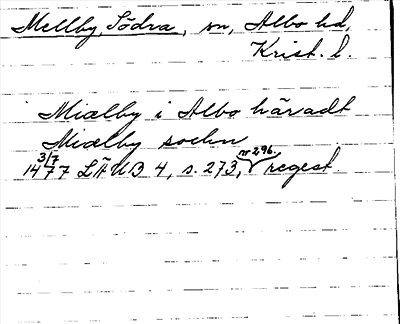 Mellby, Södra, sn, Albo hd,
Krist. l.
Miælby i Albo häradt
Miælby sochn
1477 3/7 LÄUB 4, s. 273, nr 296. regest.